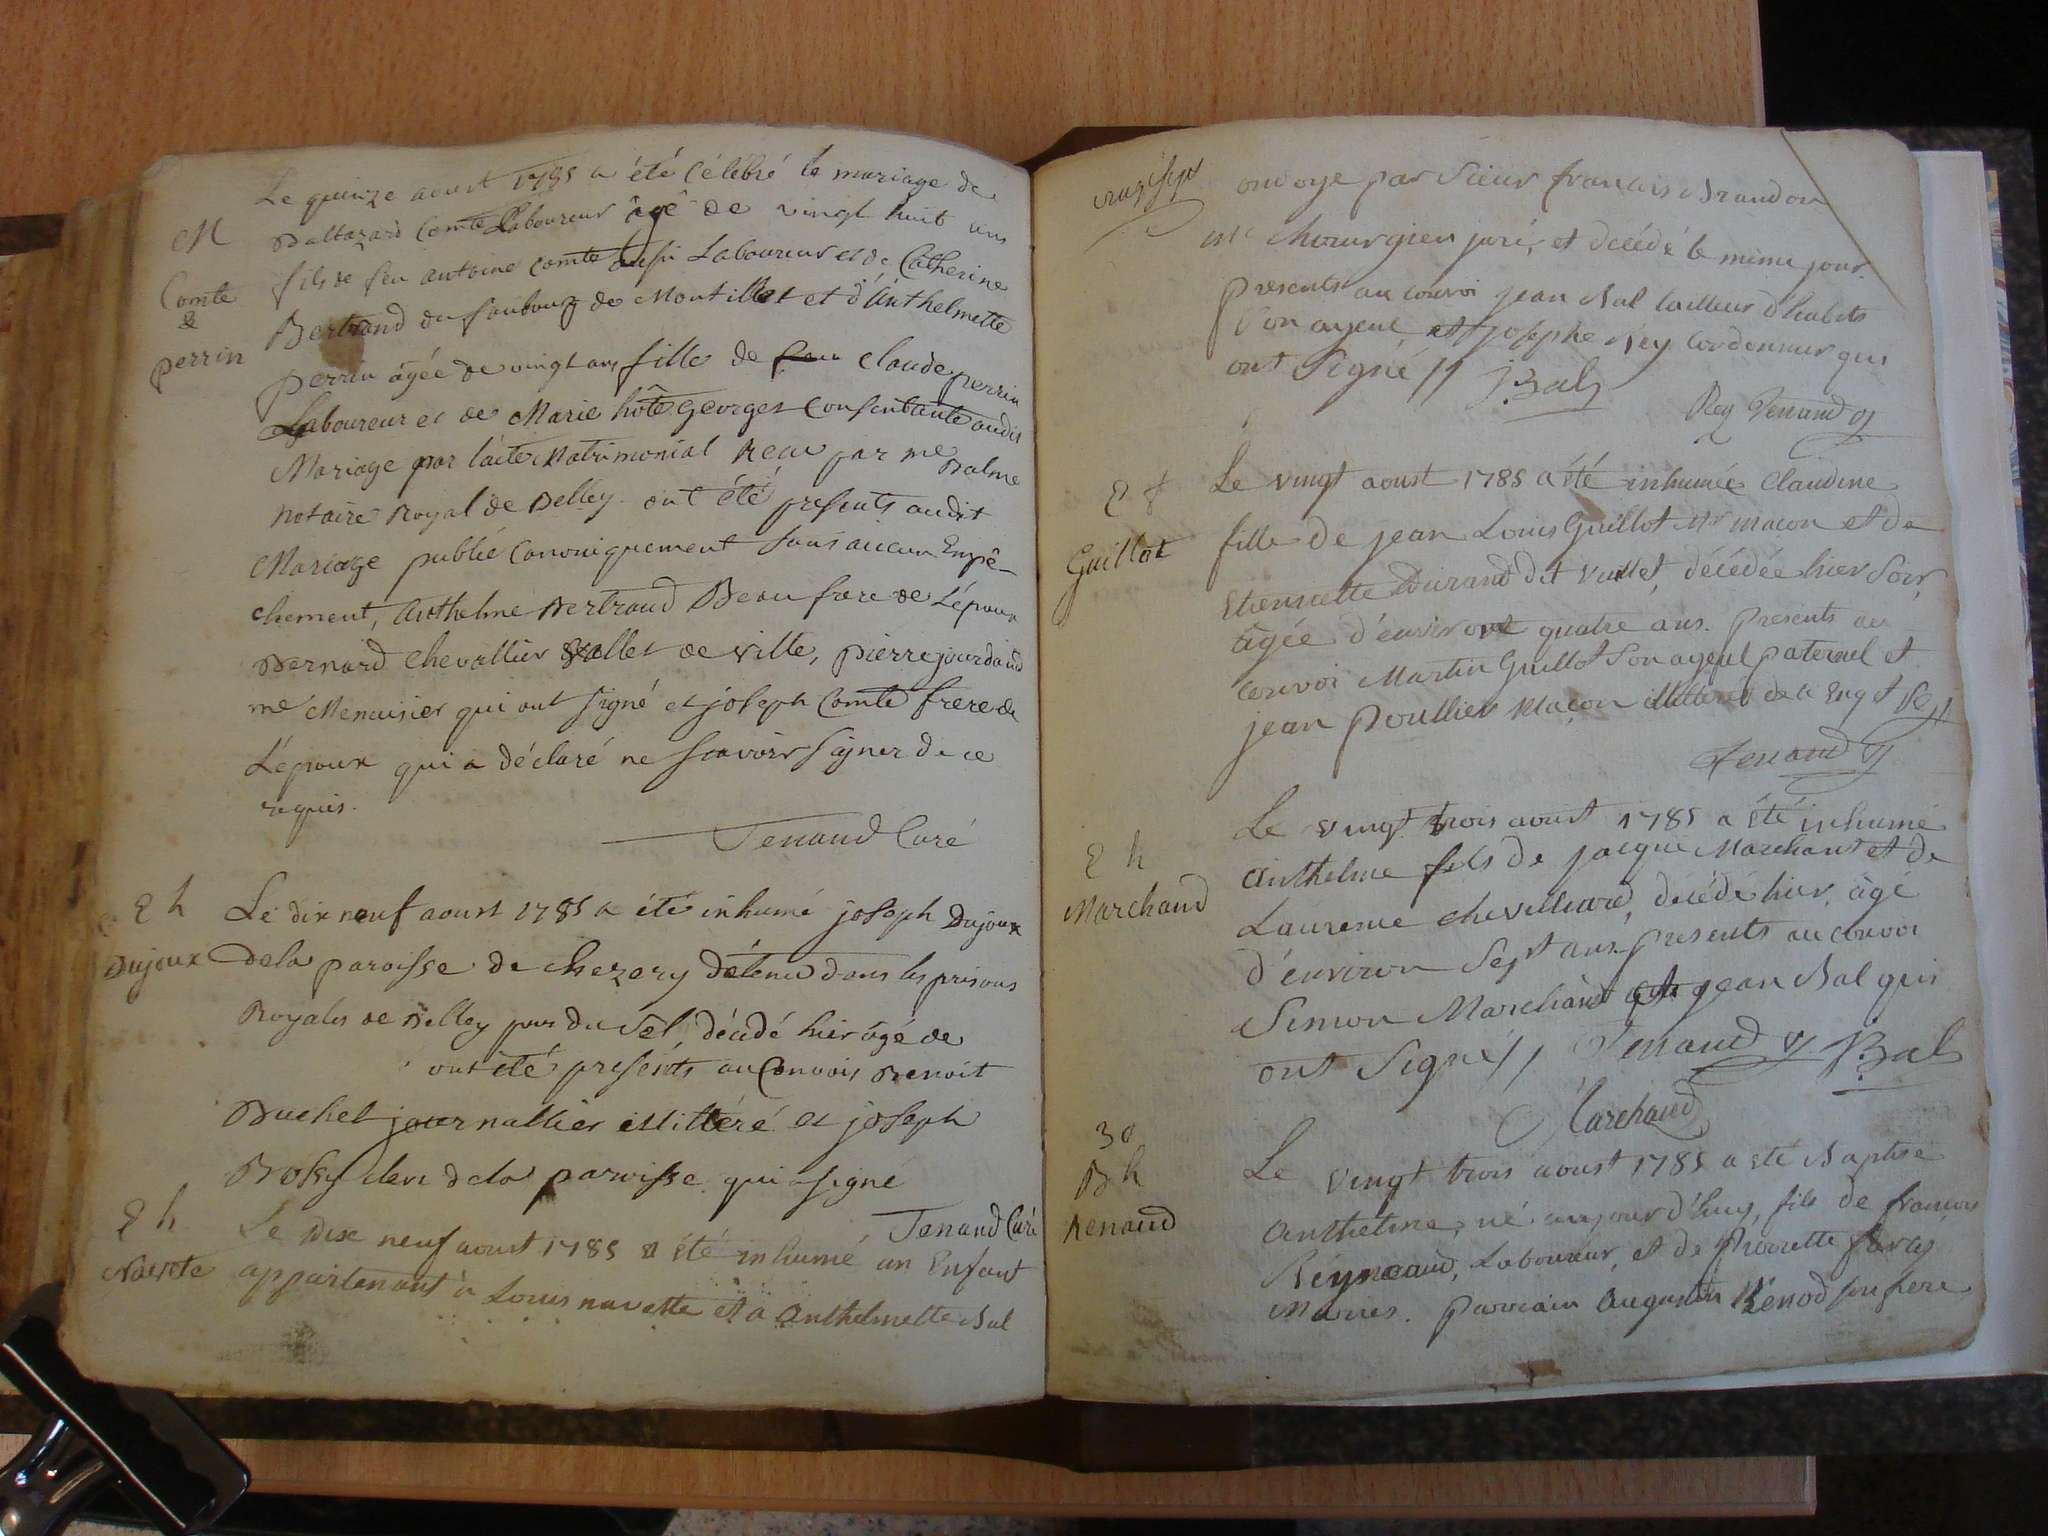 Le quinze aoust 1785 a été célébré le mariage de
M
Baltazard Comte Laboureur âgé de vingt huit ans
Comte
&
perrin
fils de feu antoine comte aussi Laboureur et de Catherine
Bertrand du faubourg de Montillet et d'Anthelmette
perrin âgée de vingt ans fille de claude perrin
Laboureur et de Marie hôte georges consentante audit
Mariage par l'acte Matrimonial Recu par me Balme
notaire Royal de Belley. ont été presents audit
Mariage publié canoniquement sans aucun Empê-
chement, Anthelme Bertrand Beau frere de L'époux
Bernard chevallier vallet de ville, pierre jourdain
me Menuisier qui ont signé et joseph Comte frere de
L'époux qui a déclaré ne scavoir signer de ce
requis.
Tenand Curé
E h
Dujoux
Le dix neuf aoust 1785 a été inhumé joseph Dujoux
de la paroisse de chezery détenu dans les prisons
Royales de Belley pour du sel, décédé hier âgé de
ont été presents au Convois Benoit
Buchet journallier illitéré et joseph
Rossy clerc de la paroisse qui a signé
Tenand Curé
E h
Navette
Le Dix neuf aoust 1785 a été inhumé un Enfant
appartenant à Louis navette et a anthelmette Bal
vingt sept
ondoye par Sieur francois Brandon
me chirurgien juré, et décédé le même jour.
Presents au convoi jean Bal tailleur d'habits
son ayeul et josephe Rey Cordonnier qui
ont signé // J. Bal
Rey Tenand
E f
Guillot
Le vingt aoust 1785 a été inhumée claudine
fille de jean Louis Guillot Me macon et de
Etiennette Durand dit Vuillet, décédée hier soir,
âgée d'environ quatre ans. Presents au
convoi Martin Guillot son ayeul paternel et
jean Poullier Maçon illitérés de ce Enq et
Tenand
E h
Marchand
Le vingt trois aoust 1785 a été inhumé
anthelme fils de jacque Marchant et de
Laurence chevillard, décédé hier, âgé
d'environ sept ans. presents au convoi
Simon Marchand et jean Bal qui
ont signé // Tenand J. Bal
Marchand
30
B h
Renaud
Le vingt trois aoust 1785 a été Baptisé
anthelme, né aujourd'huy, fils de francois
Reynaud, Laboureur, et de Pierrette
Mariés. parrain Augustin Renod son frere